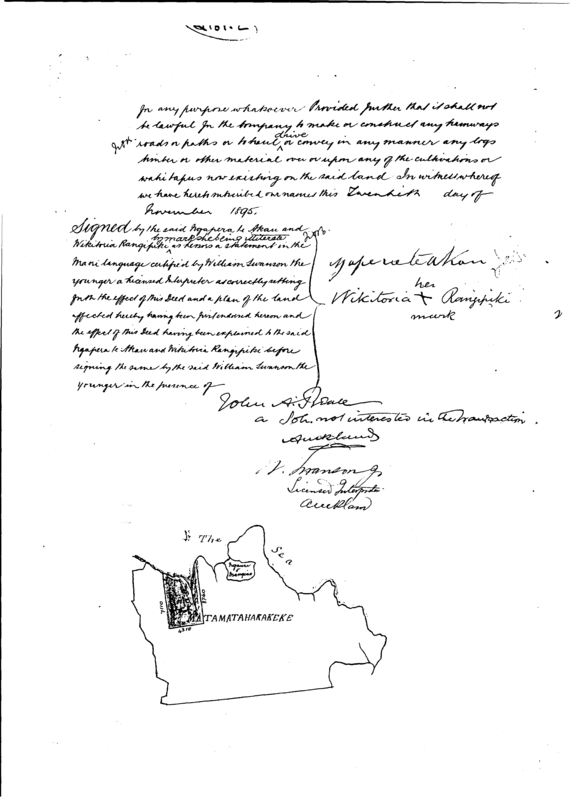 for any purpose whatsoever Provided further that it shall not
be lawful for the Company to make or construct any tramways
roads or paths or to haul drive or convey in any manner any logs
timber or other material over or upon any of the cultivations or
wahi tapus now existing on the said land In witness whereof
we have hereto subscribed our names this Twentieth day of
November 1895.
Signed by the said Ngapera te Akau and
Wikitoria Rangipiki by mark she being illiterate as hereon a statement in the
Maori language certified by William Swanson the
younger a licensed Interpreter as correctly setting
forth the effect of this Deed and a plan of the land
affected hereby having been first endorsed hereon and
the effect of this Deed having been explained to the said
Ngapera te Akau and Wikitoria Rangipiki before
signing the same by the said William Swanson the
younger in the presence of
Ngapera te Akau
her
Wikitoria + Rangipiki
mark
John A.
a Sol. not interested in the transaction.
Auckland
W. Swanson Jr
Licensed Interpreter
Auckland
The Sea
7110
5760
4510
MATAMATAHARAKEKE